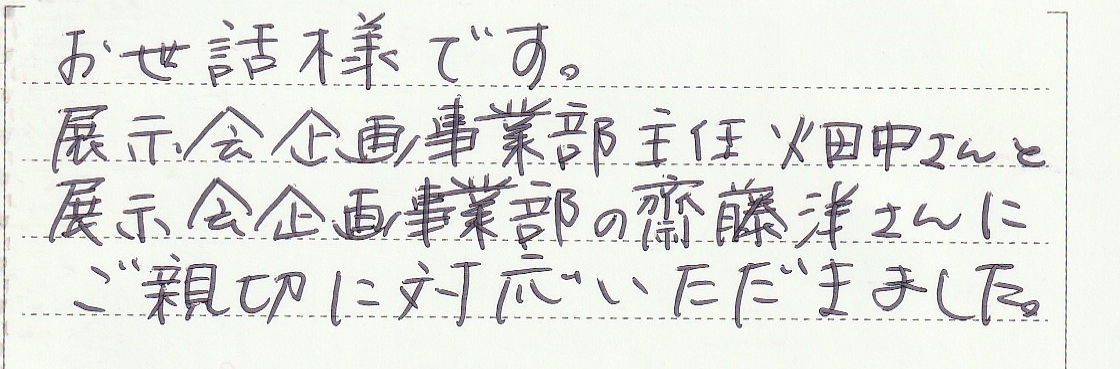 お世話様です。
展示会企画事業部主任畑中さんと
展示会企画事業部の齋藤洋さんに
ご親切に対応いただきました。